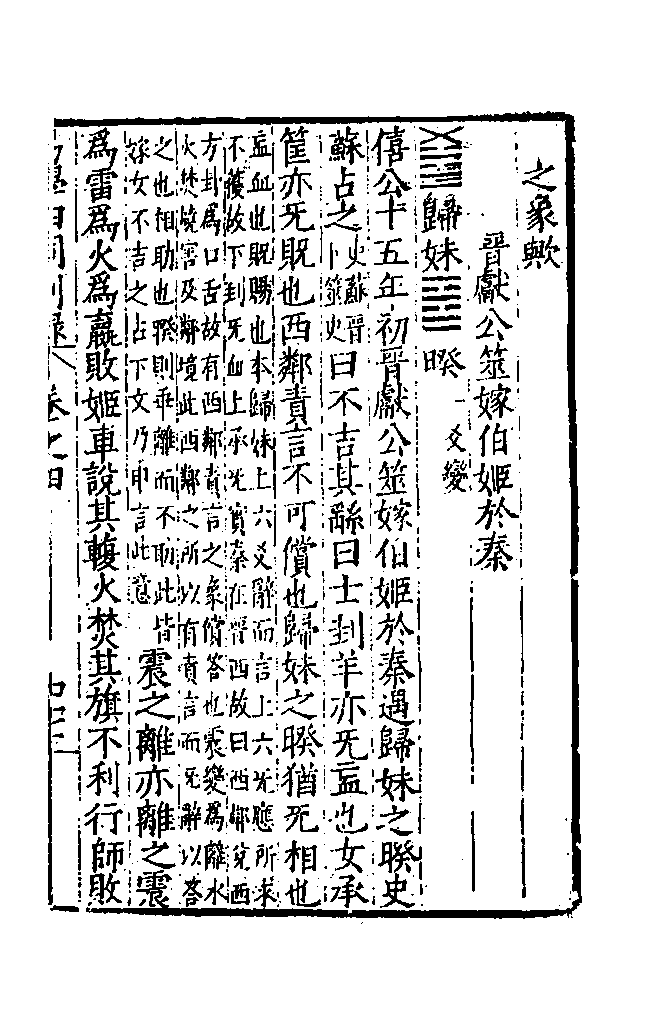 之象歟
晉獻公筮嫁伯姬於秦
歸妹 睽 一爻變
僖公十五年初晉獻公筮嫁伯姬於秦遇歸妹之睽史
蘇占之史蘇晉卜筮史曰不吉其繇曰士刲羊亦无衁也女承
筐亦无貺也西鄰責言不可償也歸妹之睽猶无相也
衁血也貺賜也本歸妹上六爻辭而言上六无應所求
不獲故下刲无血上承无實秦在晉西故曰西鄰兌西
方卦為口舌故有西鄰責言之象償答也震變為離水
火焚燒害及鄰境此西鄰之所以有責言而无辭以答
之也相助也睽則乖離而不助此皆
嫁女不吉之占下文乃申言此意
震之離亦離之震
為雷為火為嬴敗姬車說其輹火焚其旗不利行師敗
卷之四